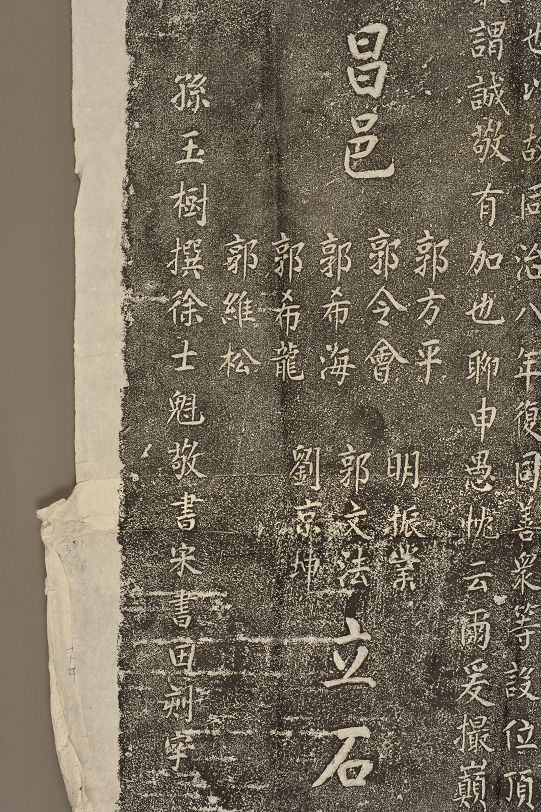 也以故同治八年復因善衆等設位頂
謂誠敬有加也聊申愚忱云爾爰撮巔
昌邑
郭方平
郭令會
郭希海
郭希龍
郭維松
明振業
郭文法
劉京坤
立石
孫玉樹撰徐士魁敬書宋書田刻字